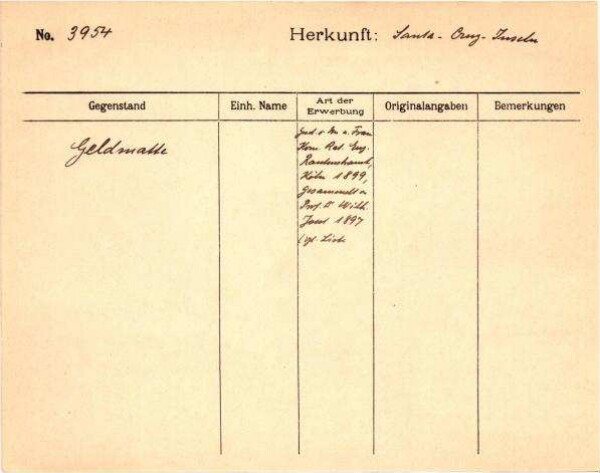 No. 3954 Herkunft: Santa-Cruz-Inseln
Gegenstand Einh. Name Art der Erwerbung Originalangaben Bemerkungen
Geldmatte
v. u. Frau
Kom. Rat Eug.
Rautenstrauch,
Köln 1899,
Gesammelt v.
Prof. Dr Wilh.
Joest 1897
Liste